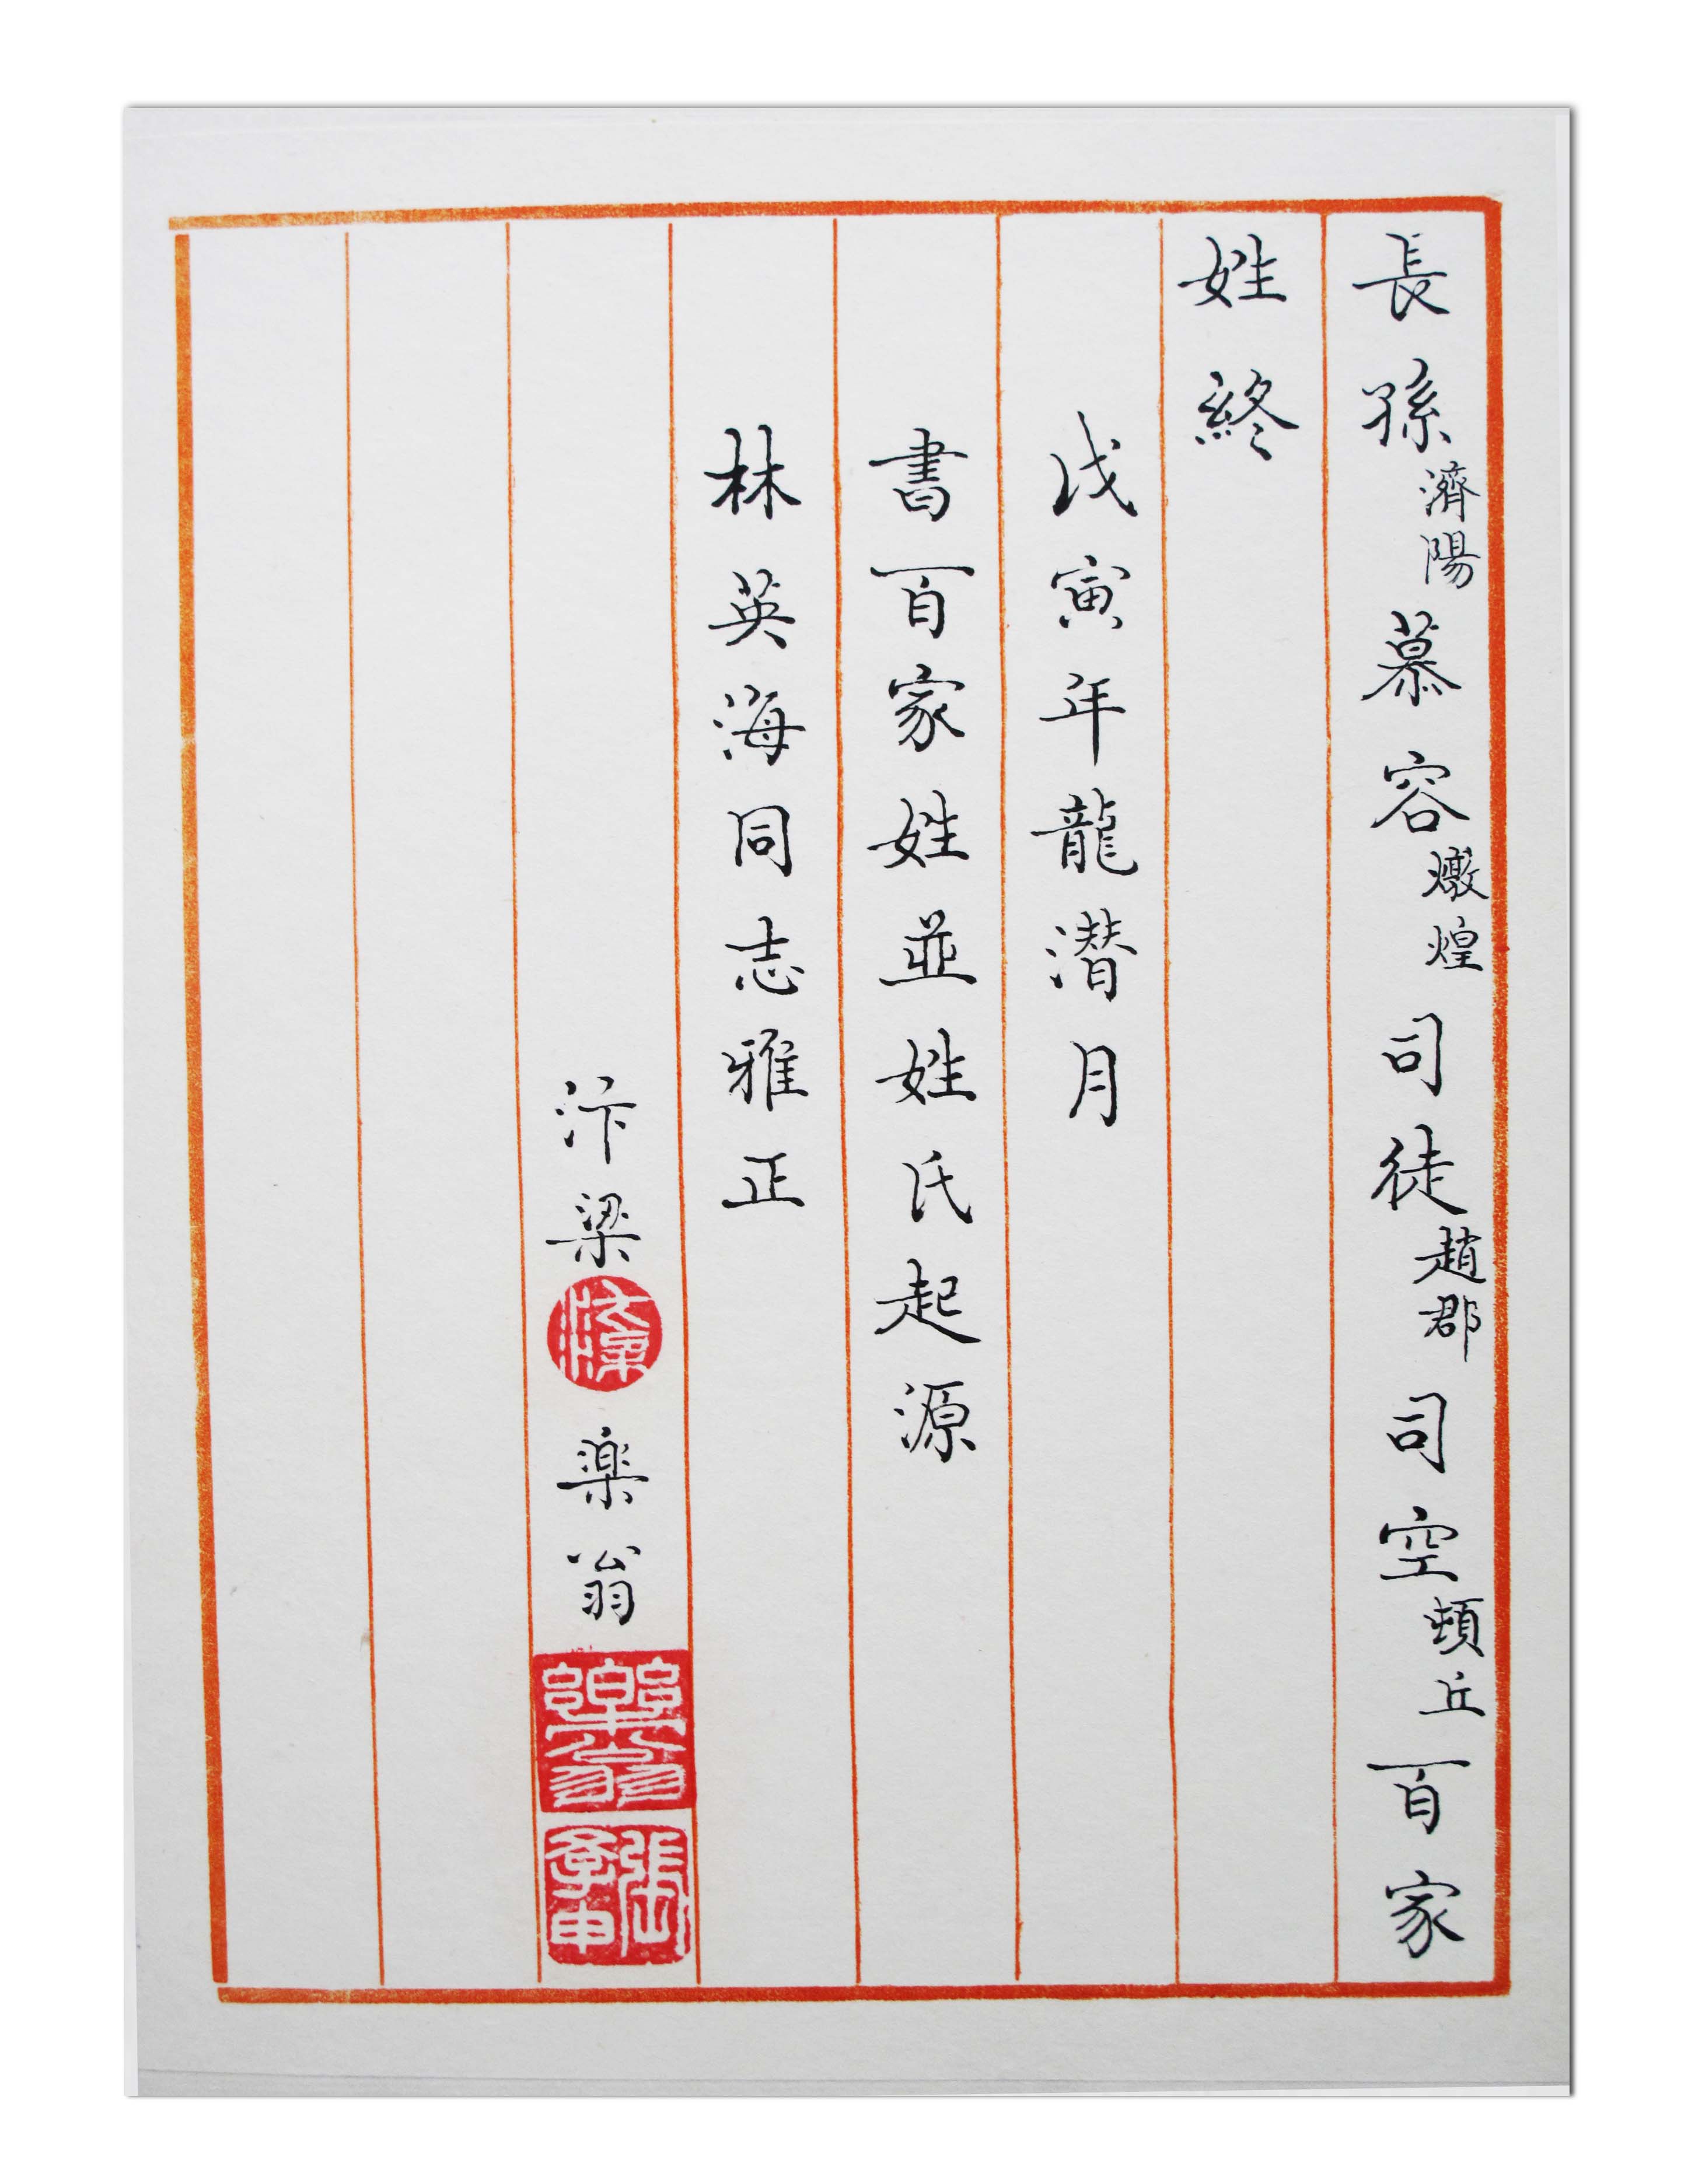 長孫濟陽慕容燉煌司徒趙郡司空頓丘百家
姓終
戊寅年龍潛月
書百家姓並姓氏起源
林英海同志雅正
汴梁樂翁
樂翁
張孝申